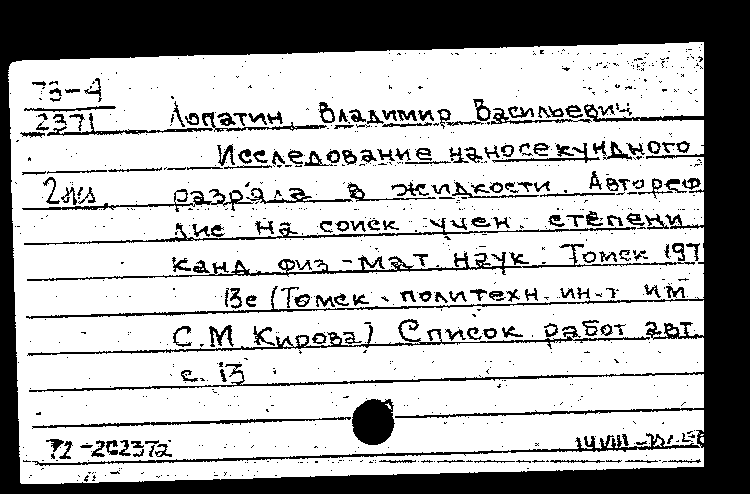 73-4
2371
Лопатин, Владимир Васильевич
Исследование наносекундного
2 экз. разряда в жидкости. Автореф
дис на соиск учен. степени
канд. физ-мат. наук. Томск 197
13с (Томск. политехн. ин-т им
С.М. Кирова) Список работ авт.
с. 13